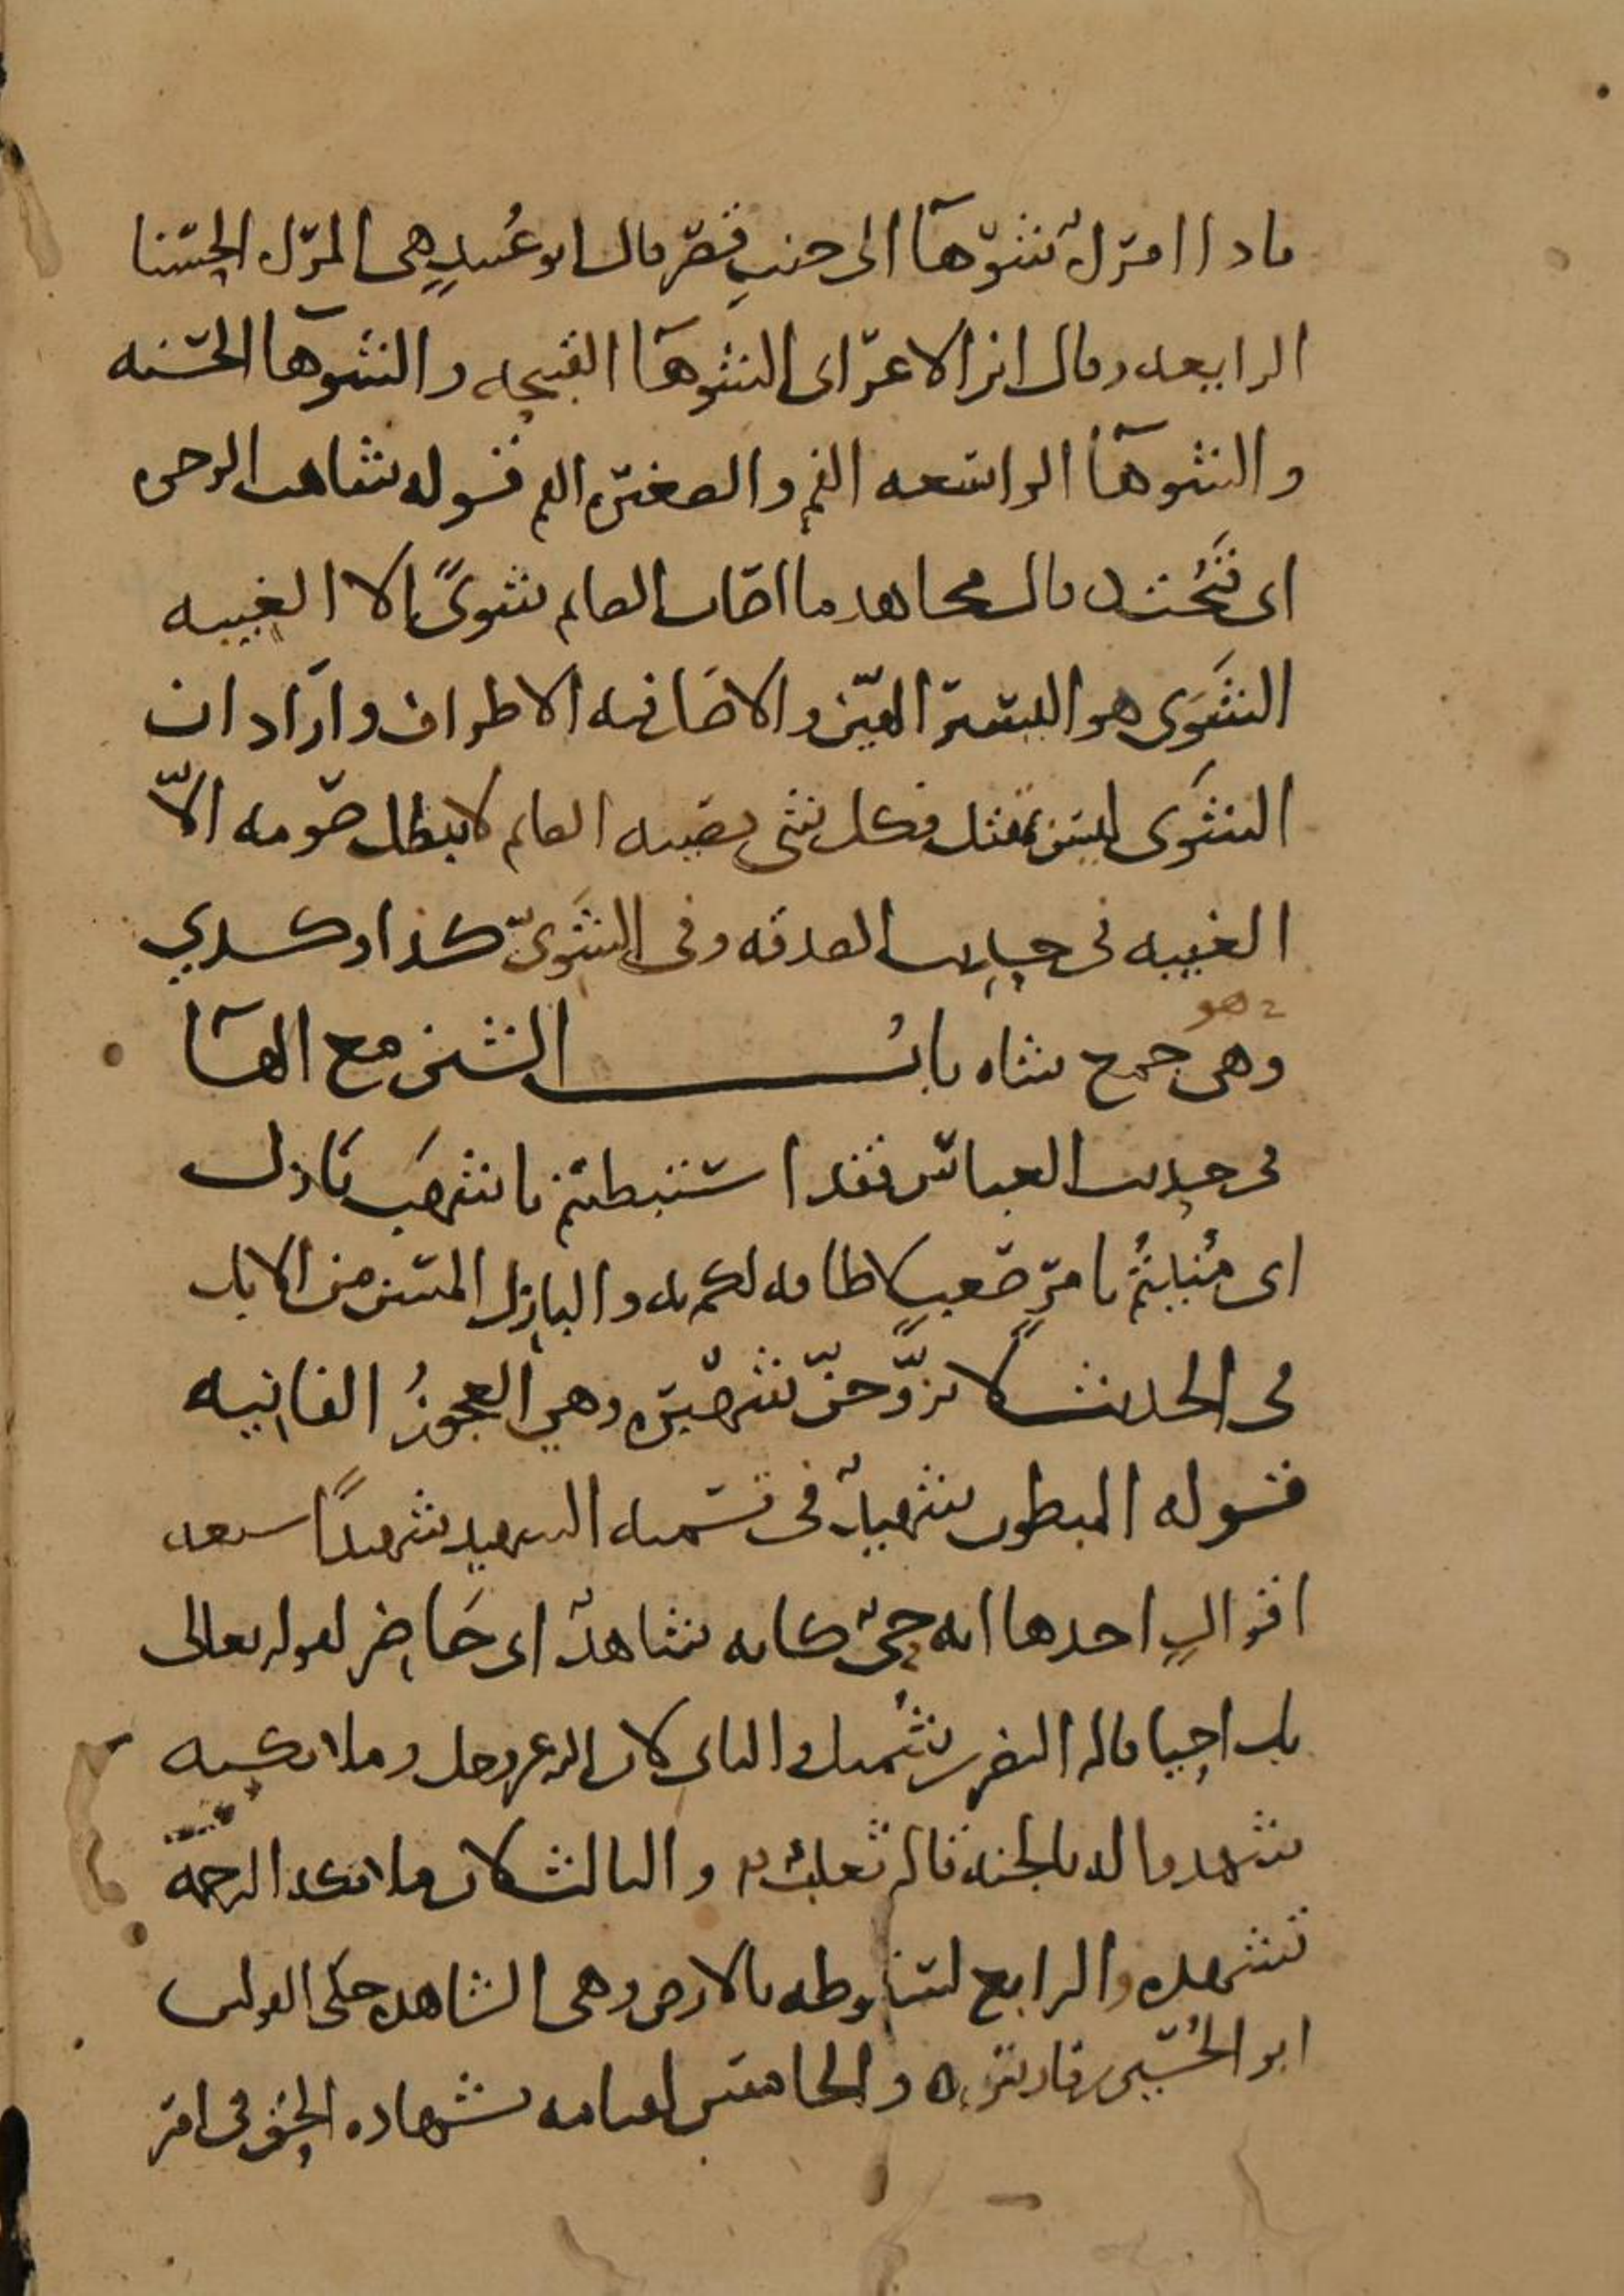 فاذا امرأة شوهاء الى جنب قصر قال ابو عبيد هي المرأة الحسنا
الرايعه وقال ابن الاعرابي الشوهاء القبيحه والشوهاء الحسنه
والشوهاء الواسعه الفم والصغيره الفم قوله شاهت الوجوه
اى قبحت قال مجاهد ما اصاب الصايم شوى الا الغيبه
الشوى هو اليسير الهين والاصل فيه الاطراف واراد ان
الشوى ليس بمقتل فكل شي يصيبه الصايم لا يبطل صومه الا
الغيبه في حديث الصدقه وفي الشوى كذا وكذي
هو
وهى جمع شاه باب الشين مع الهاء
في حديث العباس فقد استبطنتم باشهب بازل
اى منيتم بامر صعب لا طاقه لكم به والبازل المسن من الابل
في الحديث لا تزوجن شهبره وهي العجوز الفانيه
قوله المبطون شهيد في تسميه الشهيد شهيدا سبعه
اقوال احدها انه حي كانه شاهد اى حاضر لقوله تعالى
بل احيا قاله النضر بن شميل والثاني لان الله عز وجل وملائكته
شهدوا له بالجنه قاله ثعلب والثالث لان ملائكة الرحمة
تشهده والرابع لسقوطه بالارض وهى الشاهده حكى القولين
ابو الحسين بن فارس ه والخامس لقيامه بشهاده الحق في امر